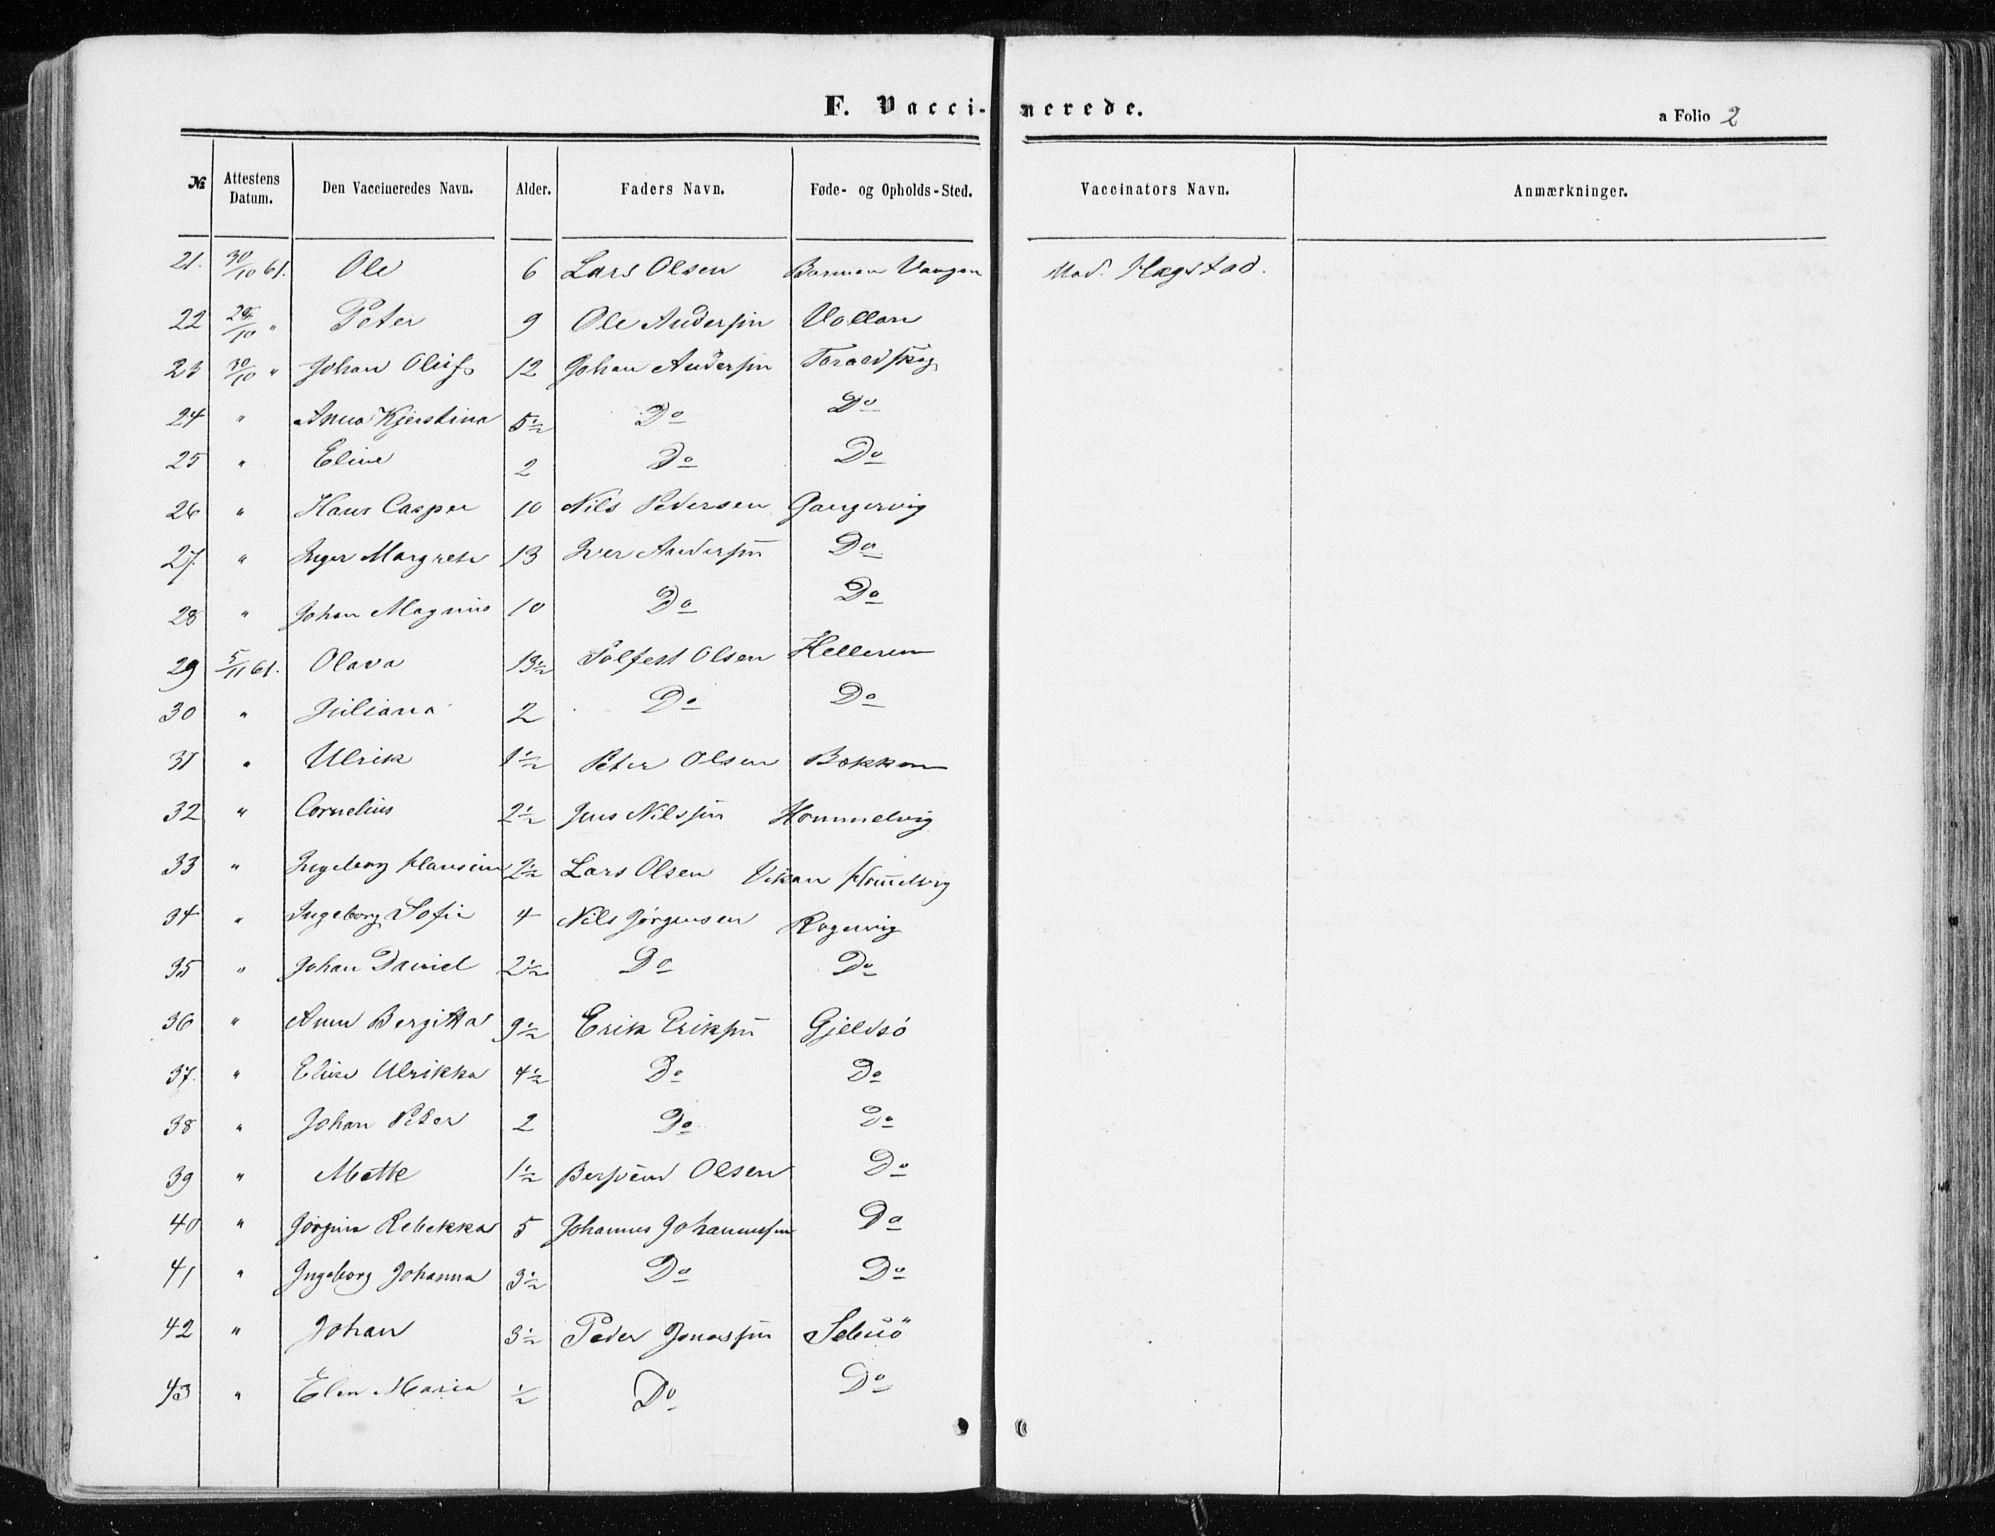 F. Vaccinerede. a Folio 2
№ Attestens Datum. Den Vaccineredes Navn. Alder. Faders Navn. Føde- og Opholds-Sted. Vaccinators Navn. Anmærkninger.
21. 30/10 61. Ole 6 Lars Olsen Barman Vangen Mad. Hagstad.
22 /10 " Peter 9 Ole Andersen Vollan
23 30/10 " Johan Oluf 12 Johan Andersen Taraldskog
24 " Anna Kjerstina 5½ Do Do
25 " Eline 2 Do Do
26 " Hans Casper 10 Nils Pedersen Gangervig
27. " Inger Margrete 13 Iver Andersen Do
28 " Johan Magnus 10 Do Do
29 5/11 61. Olava 13½ Solfest Olsen Hellerem
30 " Juliana 2 Do Do
31 " Ulrik 1½ Peter Olsen Bækken
32 " Cornelius 2½ Jens Nilssen Hommelvig
33 " Ingeborg Hansine 2½ Lars Olsen Vikan
34 " Ingeborg Sofie 4 Nils Jørgensen
35 " Johan Daniel 2½ Do Do
36 " Anne Bergitta 9½ Erik Eriksen Gjeldsö
37. " Elise Ulrikka 4½ Do Do
38 " Johan Peter 2 Do Do
39 " Mette 1½ Olsen Do
40 " Jørgine Rebekka 5 Johannes Johannessen Do
41 " Ingeborg Johanna 3½ Do Do
42 " Johan 3½ Peder Jonassen
43 " Elen Maria ½ Do Do